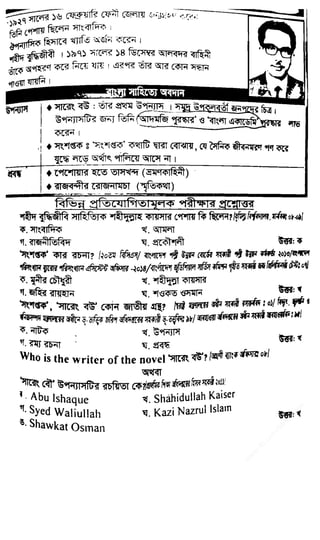 ১৯২৭ সালের ১৬ ফেব্রুয়ারি ফেনী জেলায় জন্মগ্রহণ
তিনি পেশায় ছিলেন সাংবাদিক ।
ঔপন্যাসিক হিসাবে খ্যাতি অর্জন করেন ।
শহীদ বুদ্ধিজীবী । ১৯৭১ সালের ১৪ ডিসেম্বর আলবদর বাহিনী
তাঁকে অপহরণ করে নিয়ে যায় । এরপর তাঁর আর কোন সন্ধান
পাওয়া যায়নি ।
বাংলা সাহিত্যে অবদান
উপন্যাস
♦ সারেং বউ : তাঁর প্রথম উপন্যাস । সমুদ্র উপকূলবর্তী জনপদের চিত্র ।
উপন্যাসটির জন্য তিনি 'আদমজি পুরস্কার' ও 'বাংলা একাডেমি পুরস্কার' লাভ
করেন ।
♦ সংশপ্তক : 'সংশপ্তক' কথাটি দ্বারা বোঝায়, যে সৈনিক জীবনমরণ পণ করে
যুদ্ধে লড়ে অথচ পালিয়ে আসে না ।
প্রবন্ধ
♦ পেশোয়ার থেকে তাসখন্দ (ভ্রমণকাহিনী)
♦ রাজবন্দীর রোজনামচা (স্মৃতিকথা)
বিভিন্ন প্রতিযোগিতামূলক পরীক্ষার প্রশ্নোত্তর
শহীদ বুদ্ধিজীবি সাহিত্যিক শহীদুল্লাহ কায়সার পেশায় কি ছিলেন?
ক. সাংবাদিক
খ. আমলা
গ. রাজনীতিবিদ
ঘ. প্রকৌশলী
উত্তর: ক
'সংশপ্তক' কার রচনা?
ক. মুনীর চৌধুরী
খ. শহীদুল্লা কায়সার
গ. জহির রায়হান
ঘ. শওকত ওসমান
উত্তর: খ
'সংশপ্তক', 'সারেং বউ' কোন জাতীয় গ্রন্থ?
ক. নাটক
খ. উপন্যাস
গ. রম্য রচনা
ঘ. প্রবন্ধ
উত্তর: খ
Who is the writer of the novel 'সারেং বউ'?
অথবা
'সারেং বৌ' উপন্যাসটির রচয়িতা কে?
ক. Abu Ishaque
খ. Shahidullah Kaiser
গ. Syed Waliullah
ঘ. Kazi Nazrul Islam
ঙ. Shawkat Osman
উত্তর: খ